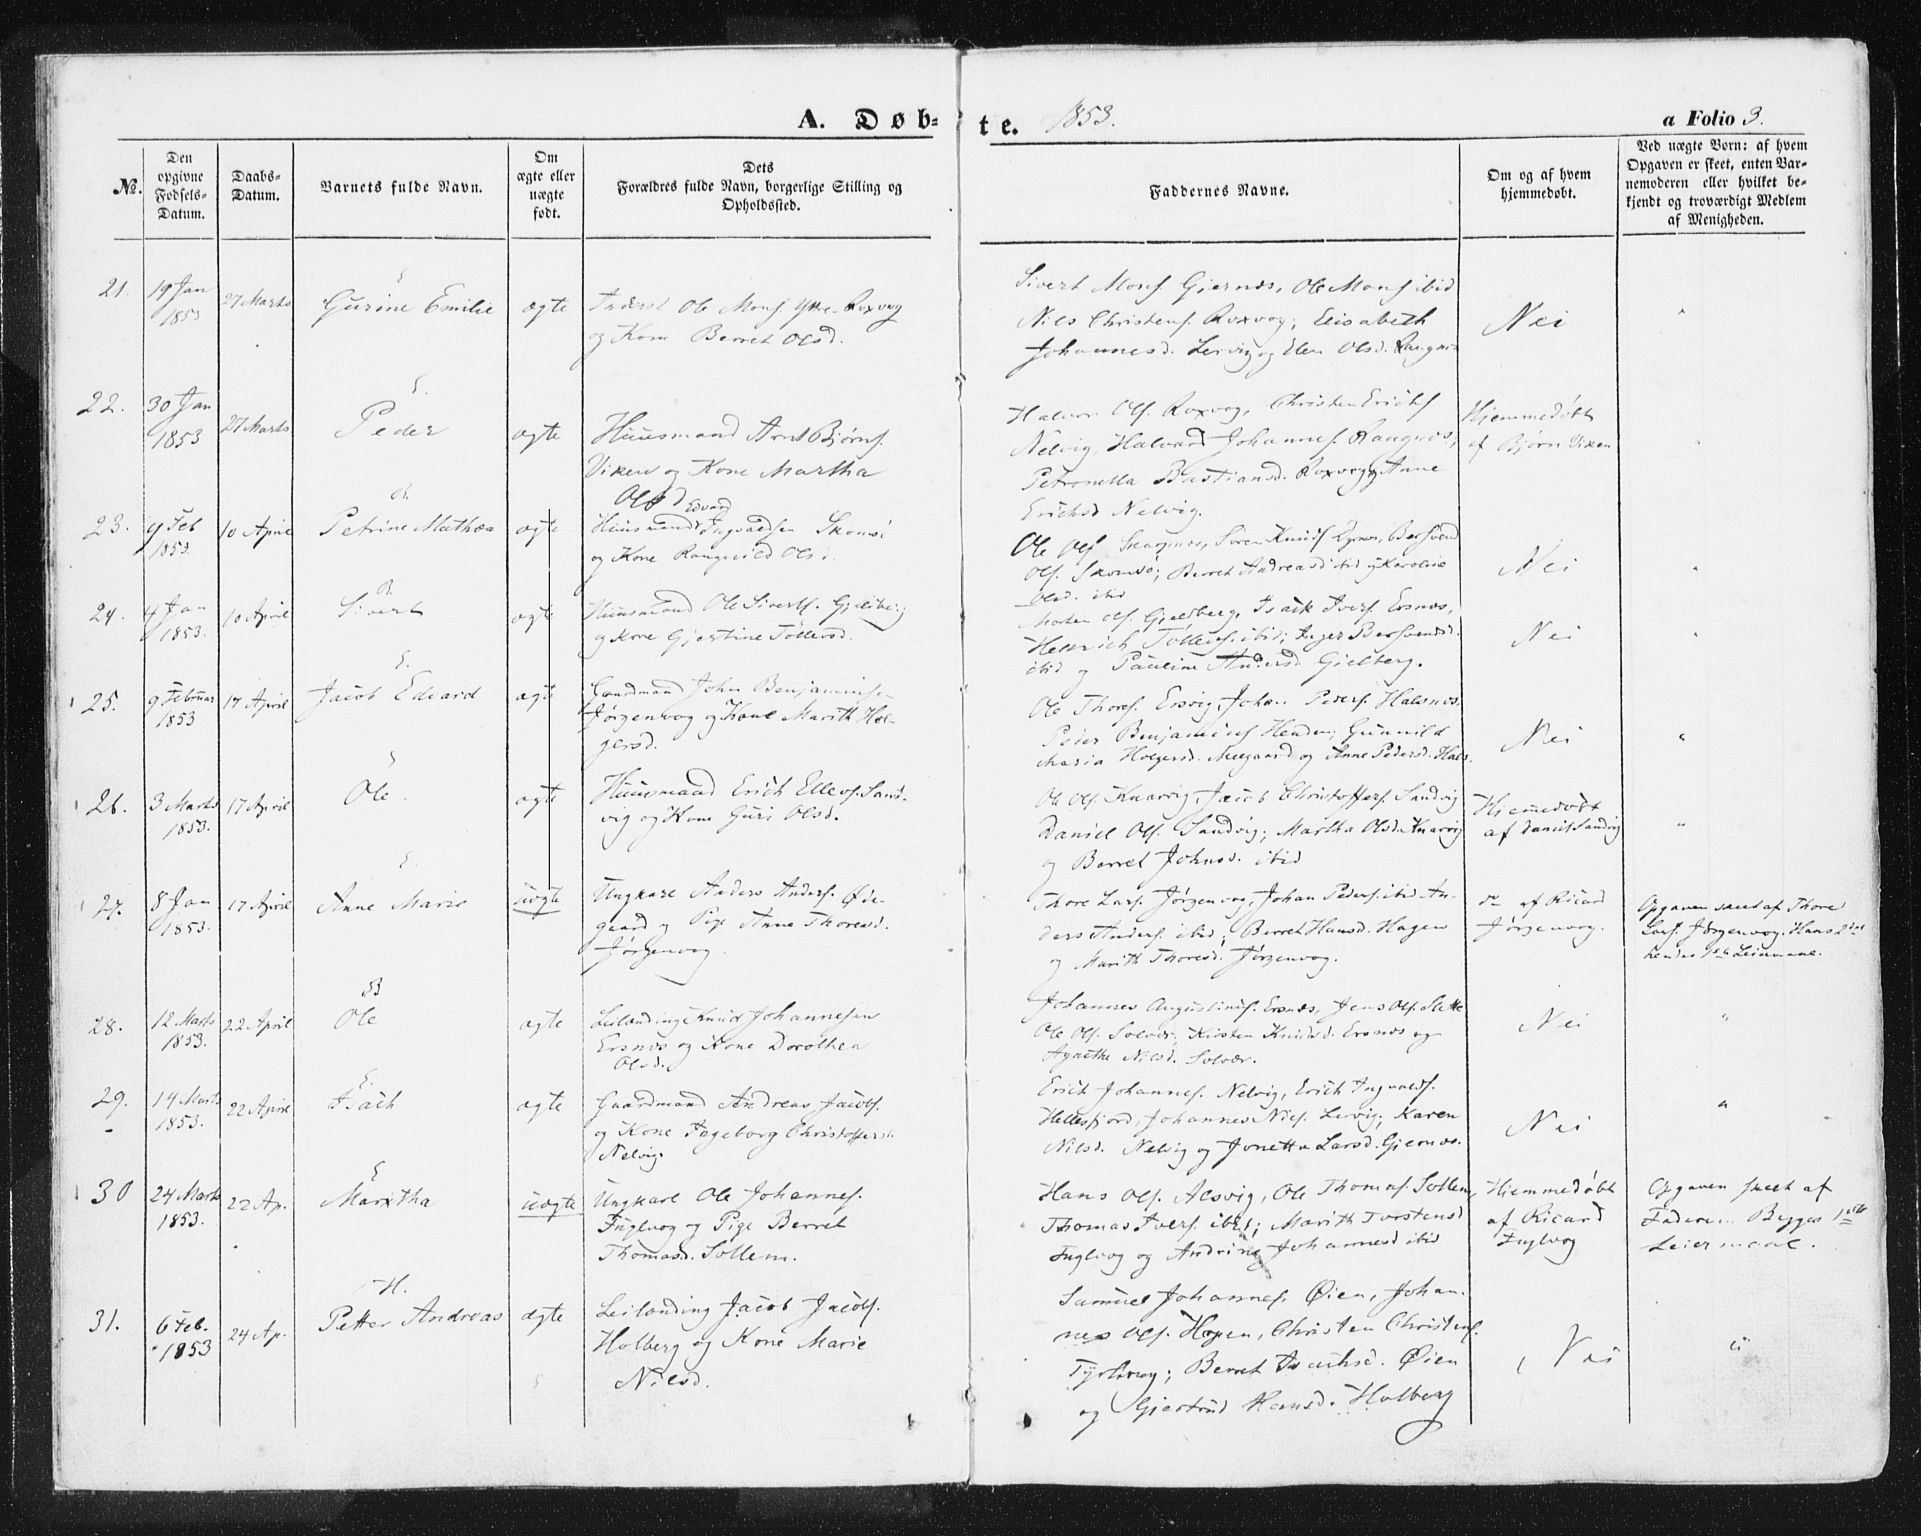 A. Døb-te. 1853.
a Folio 3.
No.
Den opgivne Fødsels-Datum.
Daabs-Datum.
Barnets fulde Navn.
Om ægte eller uægte født.
Dets
Forældres fulde Navn, borgerlige Stilling og
Opholdssted.
Faddernes Navne.
Om og af hvem
hjemmedøbt.
Ved uægte Børn: af hvem
Opgaven er skeet, enten Bar-
nemoderen eller hvilket be-
kjendt og troværdigt Medlem
af Menigheden.
21. 19 Jan 1853 27 Marts Gurine Emilie ægte
Inderst Ole Mons Ytre Roxvog
og Kone Berret Olsd.
Sivert Mons Gjernes, Ole Mons ibid
Nils Christens. Roxvog; Elisabeth
Johannesd. Lervig og Elen Olsd. Rangnes
Nei "
22. 30 Jan 1853 27 Marts Peder ægte
Huusmand Arnt Bjørns.
Viken og Kone Martha
Olsd
Halvor Ols. Roxvog, Christen Erichs
Nelvig, Halvard Johannes. Rangnes,
Petronella Bastiansd. Roxvog og Anne
Erichsd Nelvig.
Hjemmedøbt
af Bjørn Viken "
23. 9 Feb 1853. 10 April Petrine Mathea ægte
Edvard
Huusmand Ingvaldsen Skomsø
og Kone Rangnild Olsd.
Ole Ols Skagnes, Søren Knuds Eines, Bersvend
Ols. Skomsø; Berret Andreasd ibid og Karoline
Olsd. ibid
Nei "
24. 4 Jan 1853. 10 April Sivert ægte
Huusmand Ole Siverts. Gjelberg
og Kone Gjertine Tøllersd.
Morten Ols. Gjelberg, Isack Ivers. Ersnes,
Henrich Tøllers. ibid; Inger Bersvendsd.
ibid og Pauline Andersd Gjelberg.
Nei "
25. 9 Februar 1853 17 April Jacob Edvard ægte
Gaardmand John Benjaminsen
Jørgenvog og Kone Marith Hol-
gersd.
Ole Thores. Ersvig, Johan Peders. Halsnes,
Peder Benjamins Henden; Gunnild
Maria Holgersd. Neegaard og Anne Pedersd. Hals.
Nei "
26. 3 Marts 1853. 17 April Ole ægte
Huusmand Erich Ellevs. Sand-
vig og Kone Guri Olsd.
Ole Ols. Knarvig, Jacob Christoffers. Sandvig
Daniel Ols. Sandvig; Martha Olsd. Knarvig
og Berret Johnsd. ibid
Hjemmedøbt
af Daniel Sandvig "
27. 8 Jan 1853. 17 April Anne Marie uægte
Ungkarl Anders Anders. Øde-
gaard og Pige Anne Thoresd.
Jørgenvog
Thore Lars. Jørgenvog, Johan Peders. ibid An-
ders Anders. ibid; Berret Hansd. Hagen
og Marith Thoresd. Jørgenvog.
do af Ricard
Jørgenvog.
Opgaven skeet af Thore
Lars. Jørgenvog. Hans 2det
hendes 1ste Leiermaal.
28. 12 Marts 1853. 22 April Ole ægte
Leilænding Knud Johannesen
Ersnes og Kone Dorothea
Olsd.
Johannes Augustinus. Ersnes, Jens Ols. Slette
Ole Ols. Solvær; Kirsten Knudsd. Ersnes og
Agnethe Nilsd. Solvær.
Nei "
29. 14 Marts 1853. 22 April Isach ægte
Gaardmand Andreas Jacobs.
og Kone Ingeborg Christoffersd.
Nelvig.
Erich Johannes. Nelvig, Erich Ingvalds.
Hellesfjord, Johannes Niels. Lervig; Karen
Nilsd. Nelvig og Jonetta Larsd. Gjernes.
Nei "
30 24 Marts 1853. 22 Ap. Martha uægte
Ungkarl Ole Johannes.
Fuglvog og Pige Berret
Thomasd. Sollem.
Hans Ols. Alsvig, Ole Thomas. Sollem,
Thomas Ivers. ibid; Marith Torstensd
Fuglvog og Andrine Johannesd ibid
Hjemmedøbt
af Ricard
Fuglvog
Opgaven skeet af
Faderen. Begges 1ste
Leiermaal.
31. 6 Feb. 1853 24 Ap. Petter Andreas ægte
Leilænding Jacob Jacobs.
Holberg og Kone Marie
Nilsd.
Samuel Johannes. Øien, Johan-
nes Ols. Hopen, Christen Christens.
; Berret Isachsd. Øien
og Gjertrud Hansd. Holberg
Nei "